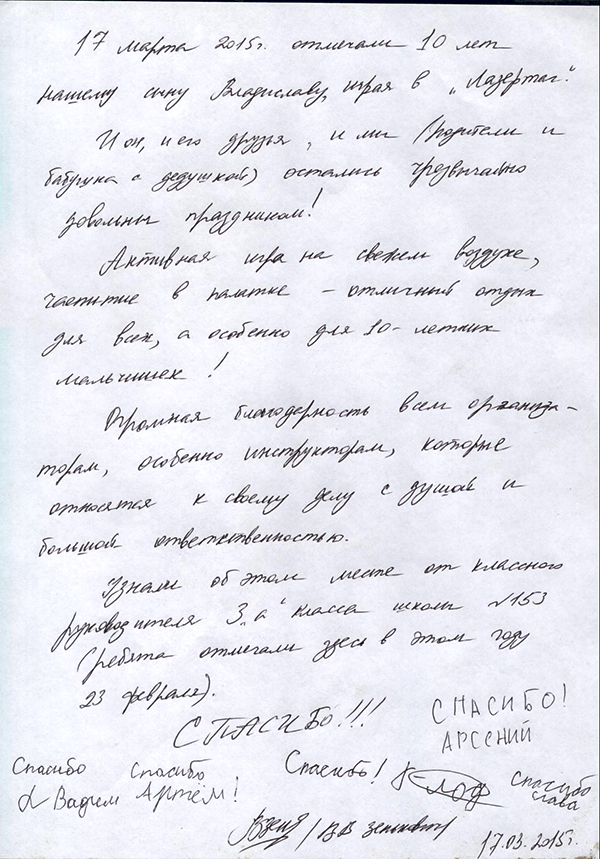 17 марта 2015г. отмечали 10 лет
нашему сыну Владиславу, играя в „Лазертаг".
И он, и его друзья, и мы (родители и
бабушка с дедушкой) остались чрезвычайно
довольны праздником!
Активная игра на свежем воздухе,
чаепитие в палатке – отличный отдых
для всех, а особенно для 10-летних
мальчишек!
Огромная благодарность всем организа-
торам, особенно инструкторам, которые
относятся к своему делу с душой и
большой ответственностью.
Узнали об этом месте от классного
руководителя 3„а" класса школы №153
(ребята отмечали здесь в этом году
23 февраля).
СПАСИБО!!!
СПАСИБО!
АРСЕНИЙ
Спасибо
Вадим
Спасибо
Артём!
Спасибо!
спасибо
слава
17.03.2015г.